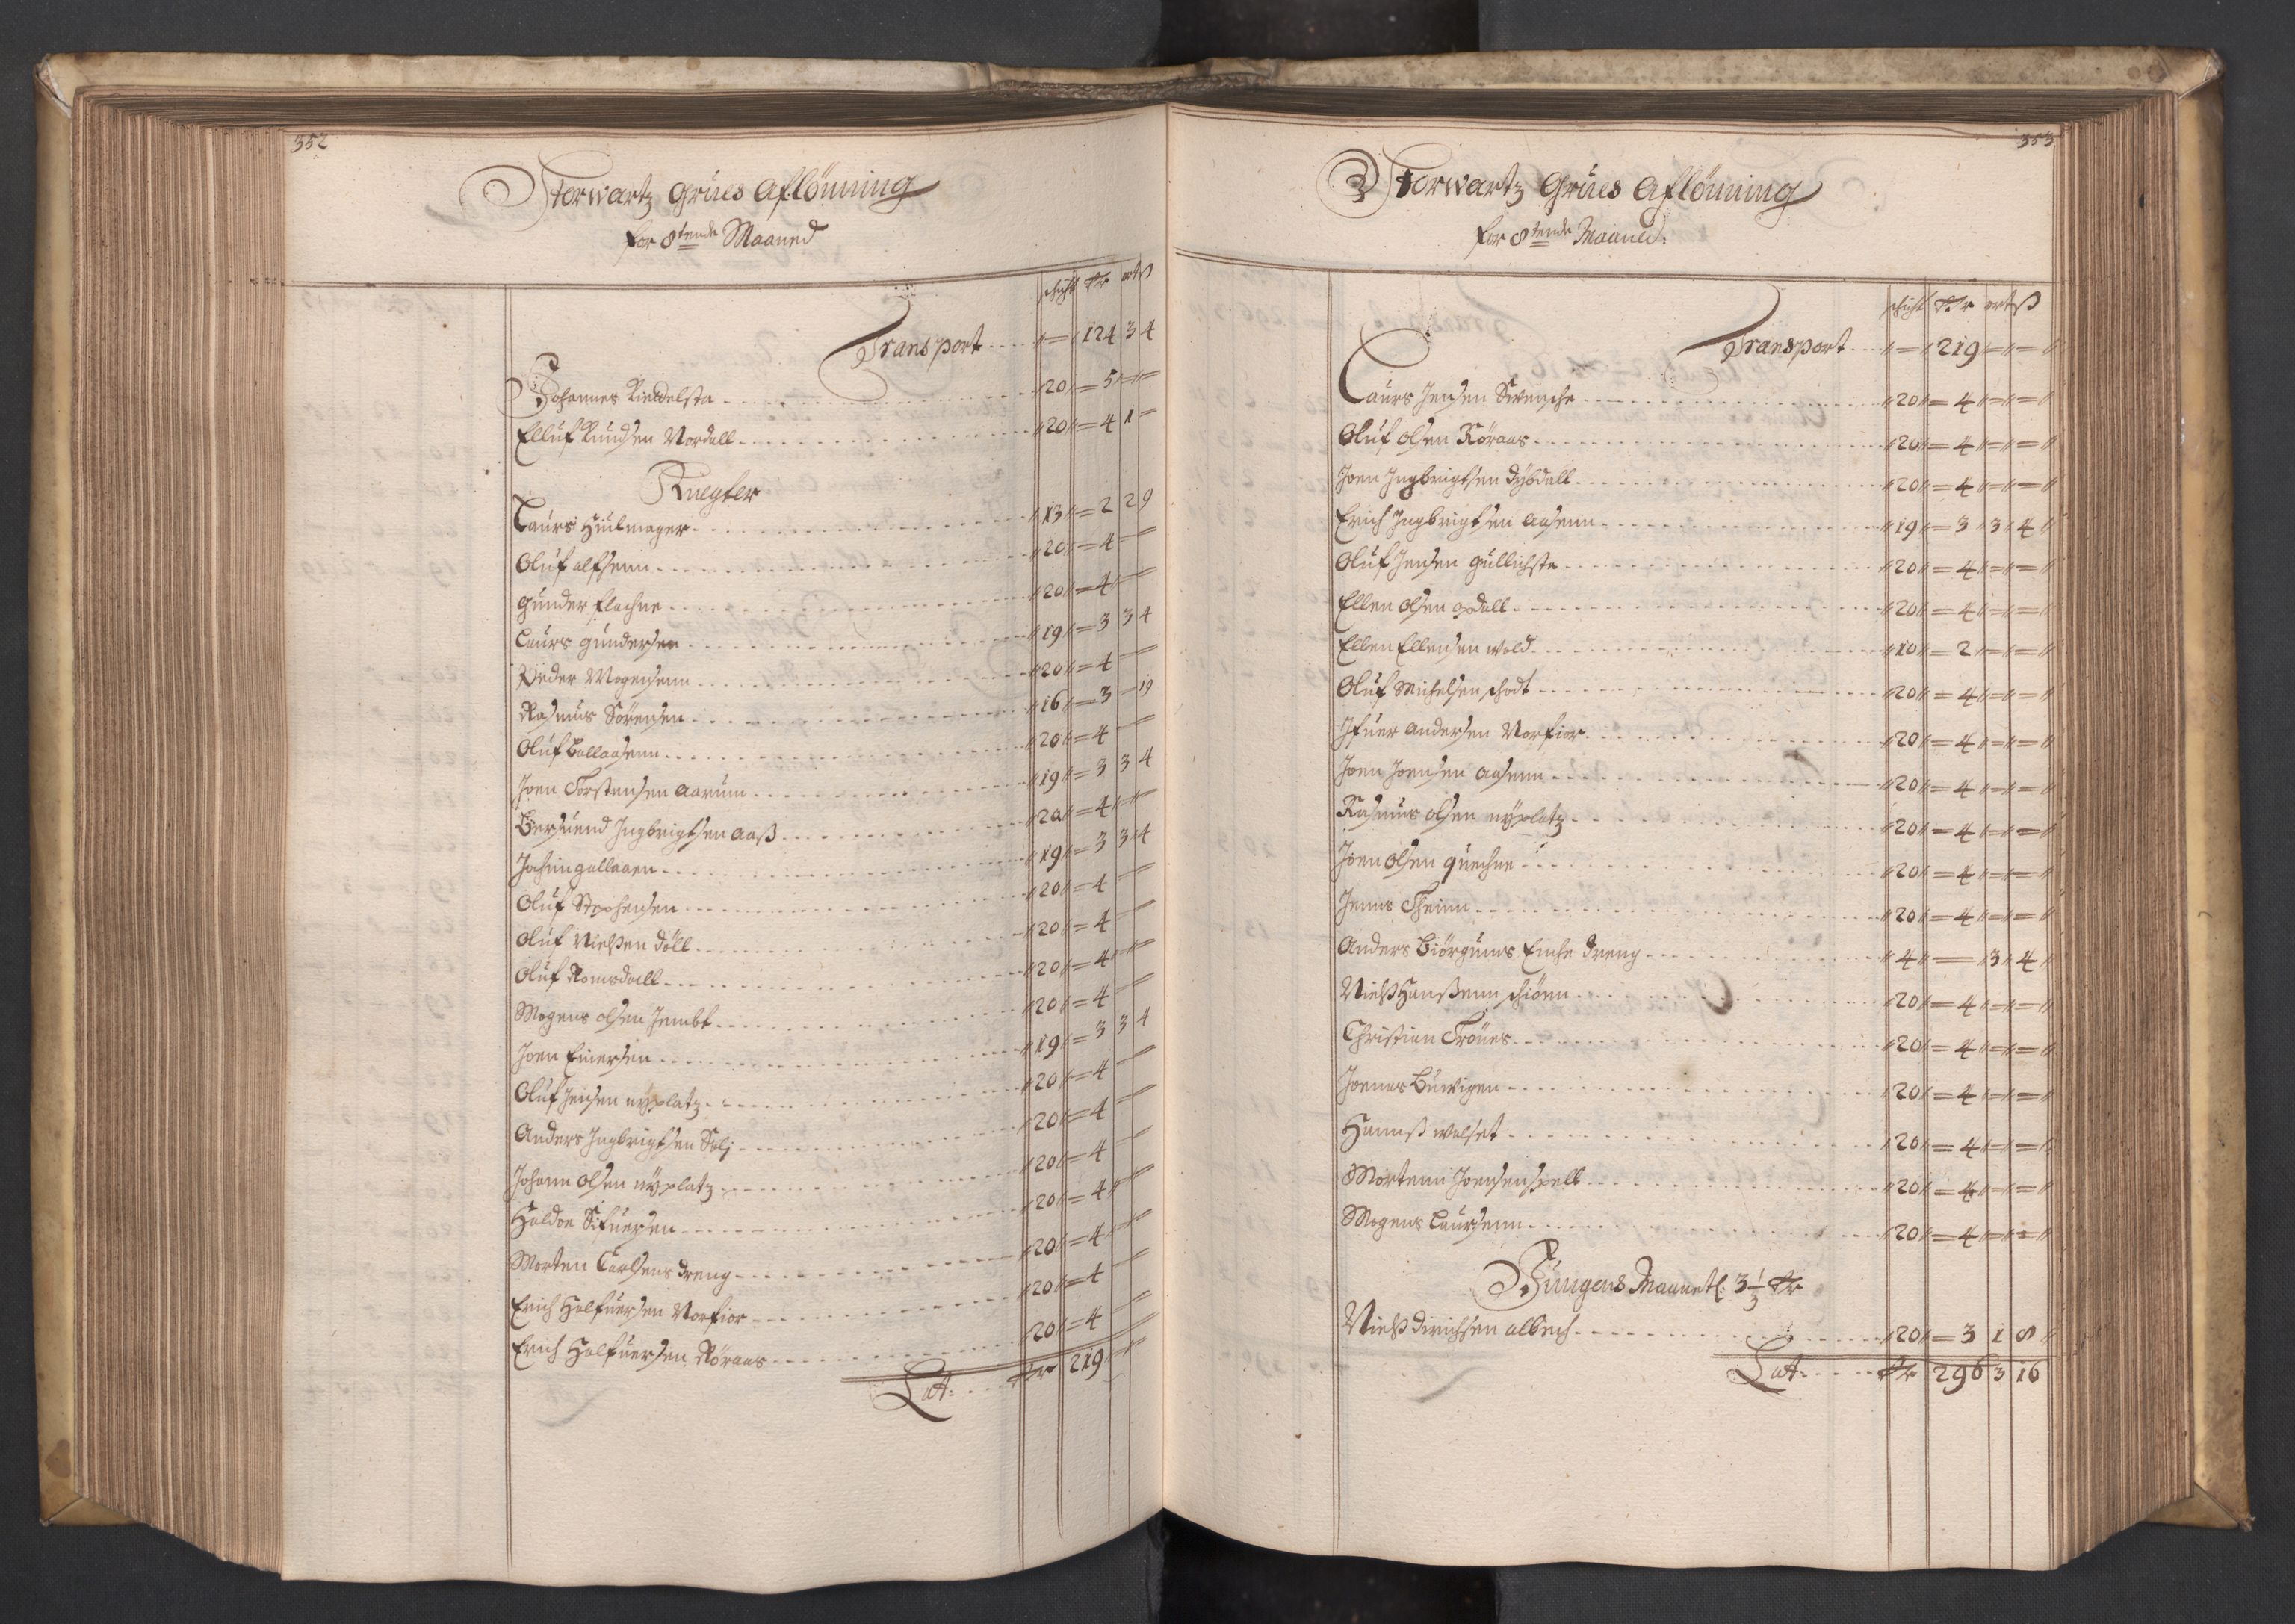 352
Storwartz Grues Aflönning
for 8tende Maaned
schicht Rdr ort ß
Transport . . . . " = " 124 3 4
Johannes Rieddelsta . . . . "20" = 5 " = " =
Elluf Knudsen Nordall . . . . "20" = 4 1 =
Knegter
Laurs Hiulmager . . . . "13" = 2 2 9
Oluf alfsenn . . . . "20" = 4 =
Gunder flachne . . . . "20" = 4 " =
Laurs Gundersen . . . . "19" = 3 3 4
Peder Mogensenn . . . . "20" = 4 =
Rasmus Sörensen . . . . "16" = 3 = 19
Oluf Ballaasenn . . . . "20" = 4 =
Joen Torstensen Aarum . . . . "19" = 3 3 4
Bersuend Ingbrigtsen Aaß . . . . "20" = 4 " = " =
Jochim gallaaen . . . . "19" = 3 3 4
Oluf Stephensen . . . . "20" = 4 =
Oluf Nielsen döll . . . . "20" = 4 =
Oluf Romsdall . . . . "20" = 4 " =
Mogens olsen Jembt . . . . "20" = 4 =
Joen Einersen . . . . "19" = 3 3 4
Oluf Jensen nÿplatz . . . . "20" = 4 =
Anders Ingbrigtsen Selj . . . . "20" = 4 =
Johann olsen nÿplatz . . . . "20" = 4 =
Haldoe Sifuersen . . . . "20" = 4 " =
Morten Carlsens dreng . . . . "20" = 4 =
Erich Halfuersen Norfior . . . . "20" = 4 =
Erich Halfuersen Röraas . . . . "20" = 4 =
Lat: . . . . Rdr 219 " =
353
Storwartz Grues Aflönning
for 8tende Maaned:
schicht Rdr ort ß
Transport . . . . " = " 219 " = " = "
Laurs Jensen Swensche . . . . "20" = 4 " = " = "
Oluf olsen Röraas . . . . "20" = 4 " = " = "
Joen Ingbrigtsen dybdall . . . . "20" = 4 " = " = "
Erich Ingbrigtsen Aasenn . . . . "19" = 3 "3" 4 "
Oluf Jensen gullichsta . . . . "20" = 4 " = " = "
Ellen olsen opdall . . . . "20" = 4 " = " = "
Ellen Ellensen wold . . . . "10" = 2 " = " = "
Oluf Michelsen schodt . . . . "20" = 4 " = " = "
Ifuer Andersen Norfior . . . . "20" = 4 " = " = "
Joen Joensen Aasenn . . . . "20" = 4 " = " = "
Rasmus olsen nÿplatz . . . . "20" = 4 " = " = "
Joen olsen quechne . . . . "20" = 4 " = " = "
Jenns Theinn . . . . "20" = 4 " = " = "
Anders Biörgums Enche dreng . . . . "4" = "3" 4 "
Nielß Hanßenn schiönn . . . . "20" = 4 " = " = "
Christian Trönes . . . . "20" = 4 " = " = "
Joenas Buwigen . . . . "20" = 4 " = " = "
Hannß walset . . . . "20" = 4 " = " = "
Mortenn Joensen spell . . . . "20" = 4 " = " = "
Mogens Laursenn . . . . "20" = 4 " = " = "
Jungens Maanetl: 3 1/3 Rdr
Nielß dirichsen albech . . . . "20" = 3 1 8 "
Lat: . . . . Rdr 296 3 16